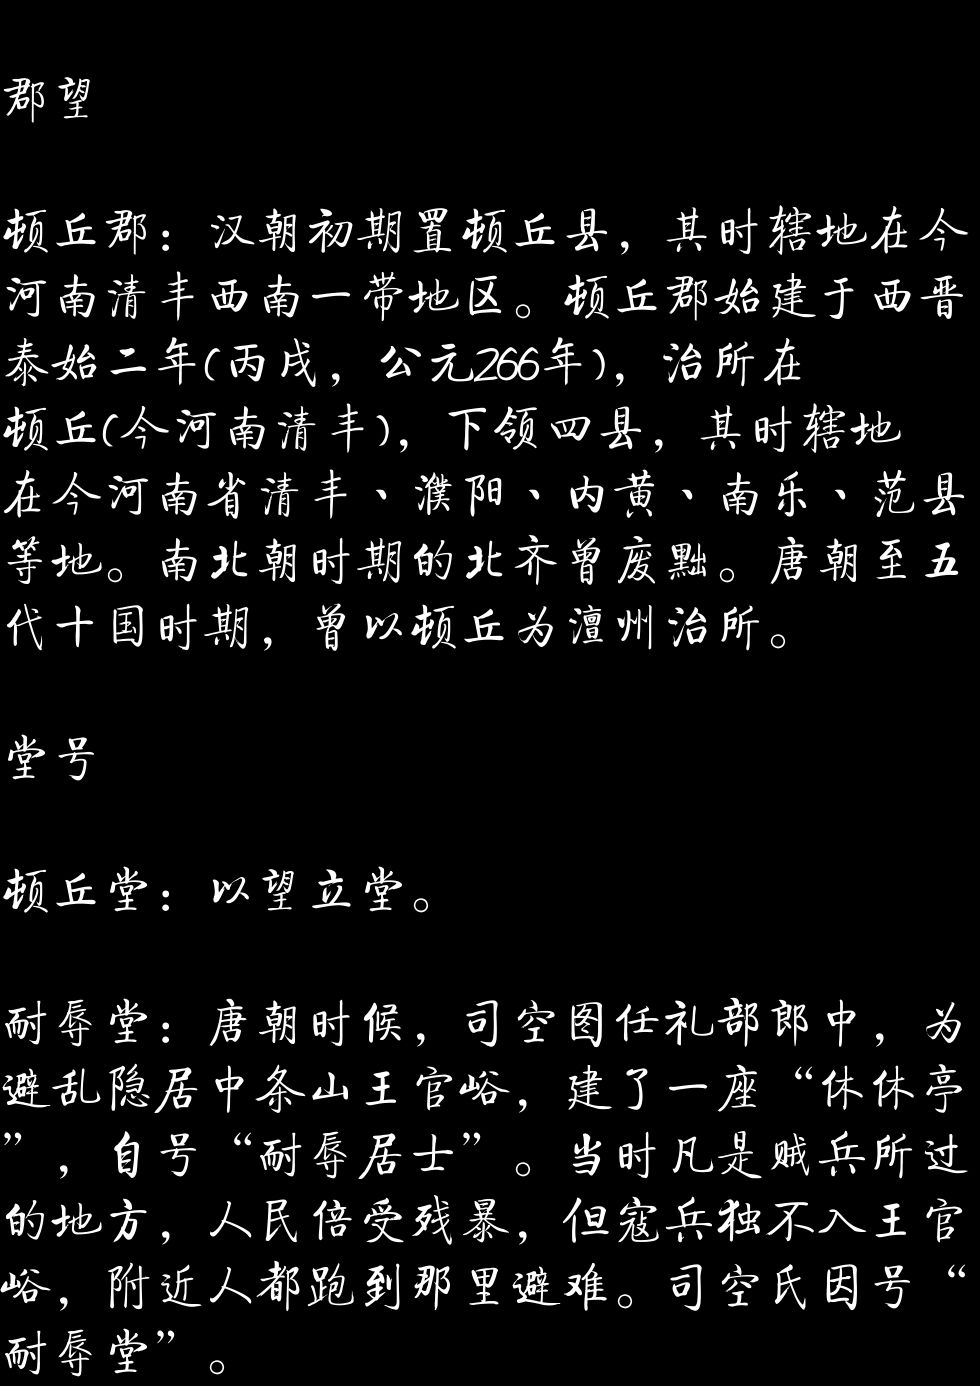 郡望
顿丘郡：汉朝初期置顿丘县，其时辖地在今
河南清丰西南一带地区。顿丘郡始建于西晋
泰始二年(丙戌，公元266年)，治所在
顿丘(今河南清丰)，下领四县，其时辖地
在今河南省清丰、濮阳、内黄、南乐、范县
等地。南北朝时期的北齐曾废黜。唐朝至五
代十国时期，曾以顿丘为澶州治所。
堂号
顿丘堂：以望立堂。
耐辱堂：唐朝时候，司空图任礼部郎中，为
避乱隐居中条山王官峪，建了一座“休休亭
”，自号“耐辱居士”。当时凡是贼兵所过
的地方，人民倍受残暴，但寇兵独不入王官
峪，附近人都跑到那里避难。司空氏因号“
耐辱堂”。